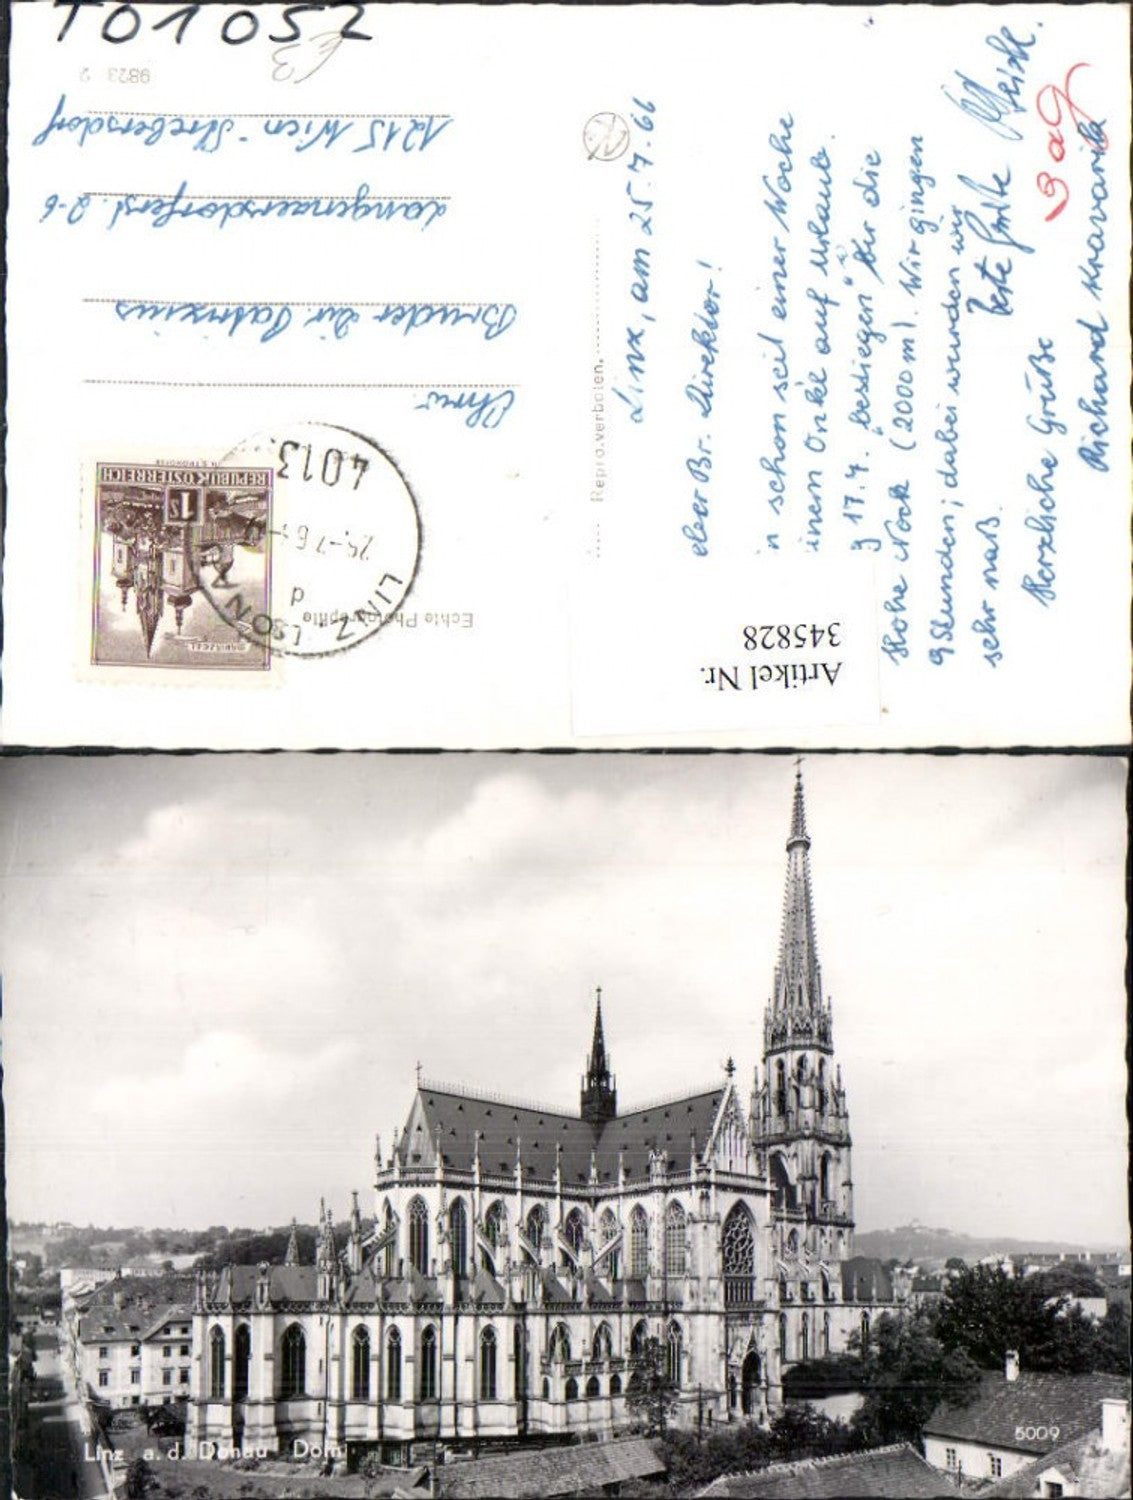 T01052
9823 2
Linz, am 25.7.66
Br. Direktor!
n schon seit einer Woche
inem Onkel auf Urlaub.
g 17.7. "bestiegen" wir die
Hohe Nock (2000 m). Wir gingen
9 Stunden; dabei wurden wir
sehr naß.
Beste Grüße
Herzliche Grüße
Richard
Repro. verboten.
Ehrw.
Bruder Dir.
Langenzersdorferst. 2-6
1215 Wien-Strebersdorf
REPUBLIK ÖSTERREICH
1S
MARIAZELL
4013
LINZ
d
Echte Photographie
Artikel Nr.
345828
Linz a. d. Donau Dom
5009